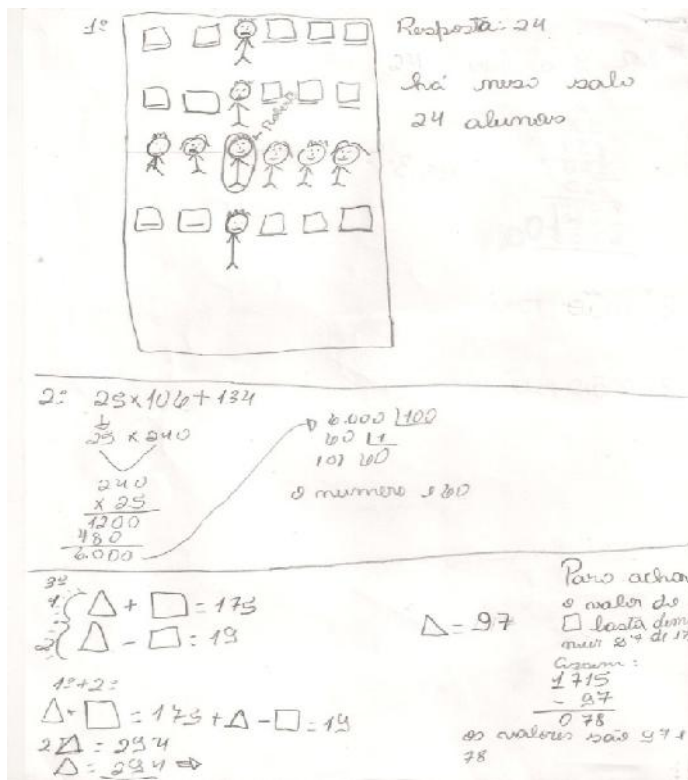 1º
Roberto
Resposta: 24
há nesso salo
24 alunos
2º 25 x 106 + 134
25 x 240
240
x 25
1200
480
6.000
6.000 100
60 1
60
o numero é 60
3º
1 △ + □ = 175
2 △ - □ = 19
1º + 2º
△ + □ = 175 + △ - □ = 19
2△ = 294
△ = 294 ⇒
△ = 97
Para achar
o valor do
□ basta dimi
nuir 97 de 17
Assim:
1715
- 97
0 78
os valores são 97 e
78